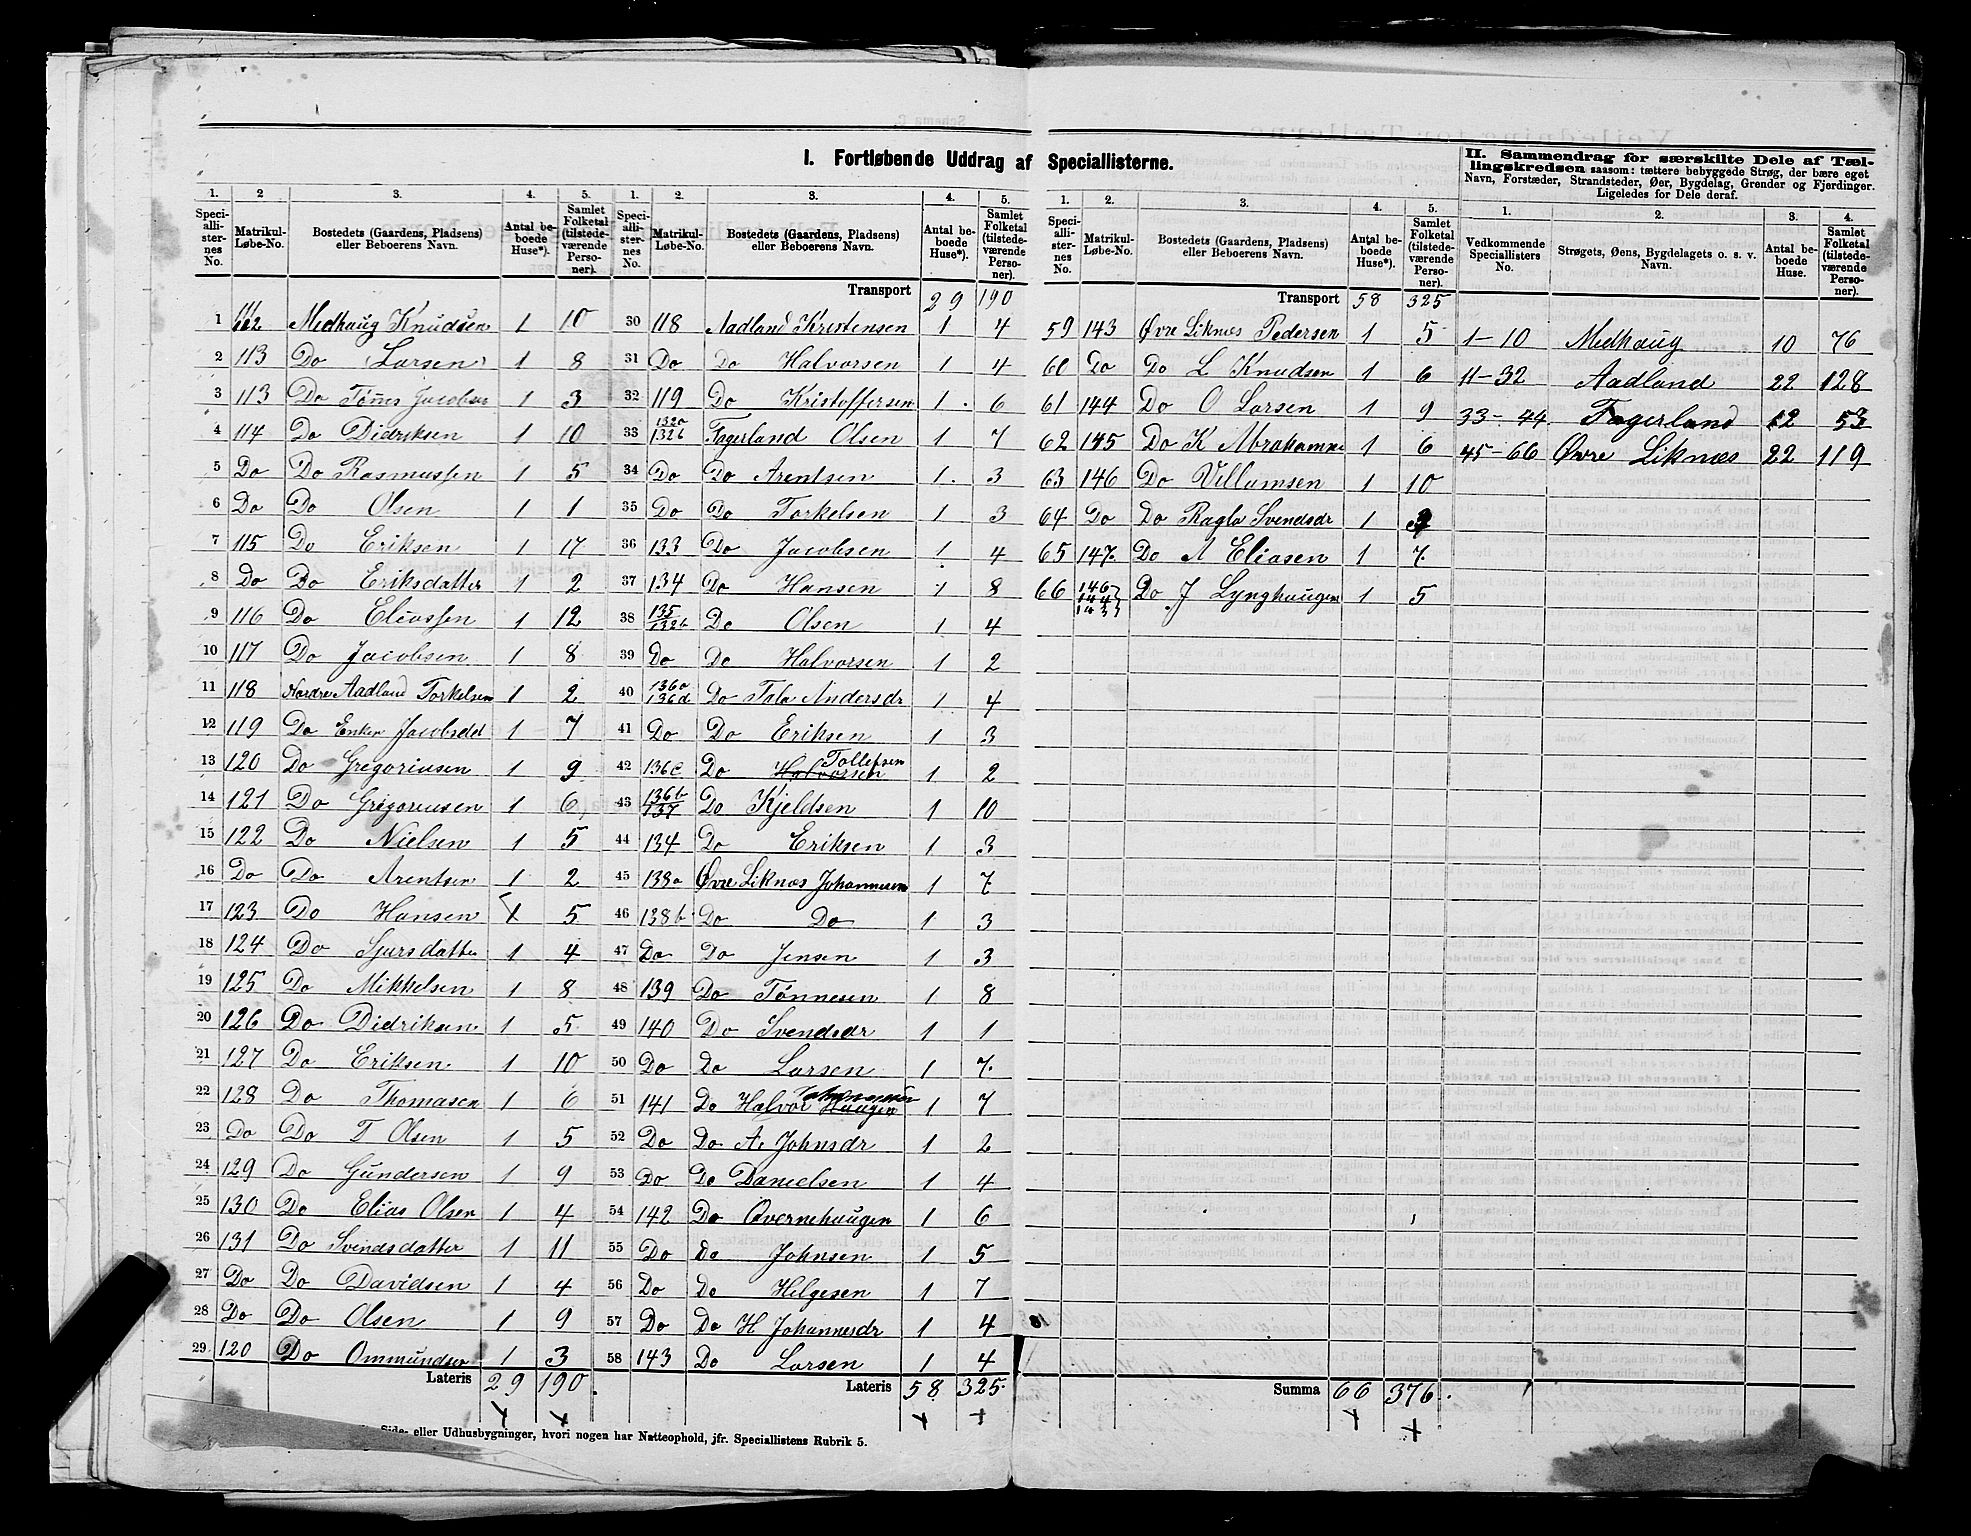 I. Fortløbende Uddrag af Speciallisterne.
II. Sammendrag for særskilte Dele af Tæl-
lingskredsen saasom: tættere bebyggede Strøg, der bære eget
Navn, Forstæder, Strandsteder, Øer, Bygdelag, Grender og Fjerdinger.
Ligeledes for Dele deraf.
1. 2. 3. 4. 5.
Speciallisternes No. Matrikul-Løbe-No. Bostedets (Gaardens, Pladsens) eller Beboerens Navn. Antal beboede Huse*). Samlet Folketal (tilstedeværende Personer).
1 112 Medhaug Knudsen 1 10
2 113 Do Larsen 1 8
3 113 Do Tønes Jacobsen 1 3
4 114 Do Didriksen 1 10
5 Do Do Rasmussen 1 5
6 Do Do Olsen 1 1
7 115 Do Eriksen 1 17
8 Do Do Eriksdatter 1 2
9 116 Do Eliassen 1 12
10 117 Do Jacobsen 1 8
11 118 Nordre Aadland Torkelsen 1 2
12 119 Do Enken Jacobsdtt 1 7
13 120 Do Gregoriusen 1 9
14 121 Do Gregoriusen 1 6
15 122 Do Nielsen 1 5
16 Do Do Arentsen 1 2
17 123 Do Hansen 1 5
18 124 Do Sjursdatter 1 4
19 125 Do Mikkelsen 1 8
20 126 Do Didriksen 1 5
21 127 Do Eriksen 1 10
22 128 Do Thomasen 1 6
23 Do Do T Olsen 1 5
24 129 Do Gundersen 1 9
25 130 Do Elias Olsen 1 4
26 131 Do Svendsdatter 1 11
27 Do Do Davidsen 1 4
28 Do Do Olsen 1 9
29 120 Do Ommundsen 1 3
Lateris 29 190.
1. 2. 3. 4. 5.
Speciallisternes No. Matrikul-Løbe-No. Bostedets (Gaardens, Pladsens) eller Beboerens Navn. Antal beboede Huse*). Samlet Folketal (tilstedeværende Personer).
Transport 29 190
30 118 Aadland Kristensen 1 4
31 Do Do Halvorsen 1 4
32 119 Do Kristoffersen 1 6
33 132a 132b Fagerland Olsen 1 7
34 Do Do Arentsen 1 3
35 Do Do Torkelsen 1 3
36 133 Do Jacobsen 1 4
37 134 Do Hansen 1 8
38 135 132b Do Olsen 1 4
39 Do Do Halvorsen 1 2
40 136a 136d Do Tala Andersdr 1 4
41 Do Do Eriksen 1 3
42 136c Do Halvorsen Tollefsen 1 2
43 136b 137 Do Kjeldsen 1 10
44 134 Do Eriksen 1 3
45 138a Øvre Liknæs Johannesen 1 7
46 138b Do Do 1 3
47 Do Do Jensen 1 3
48 139 Do Tønnesen 1 8
49 140 Do Svendsdr 1 1
50 Do Do Larsen 1 7
51 141 Do Halvor Haugen 1 7
52 Do Do A. Johnsdr 1 2
53 Do Do Danielsen 1 4
54 142 Do Øvernehaugen 1 6
55 Do Do Johnsen 1 5
56 Do Do Helgesen 1 7
57 Do Do H Johannesdr 1 4
58 143 Do Larsen 1 4
Lateris 58 325.
1. 2. 3. 4. 5.
Speciallisternes No. Matrikul-Løbe-No. Bostedets (Gaardens, Pladsens) eller Beboerens Navn. Antal beboede Huse*). Samlet Folketal (tilstedeværende Personer).
Transport 58 325
59 143 Øvre Liknæs Pedersen 1 5
60 Do Do L Knudsen 1 6
61 144 Do O Larsen 1 9
62 145 Do K Abrahamsen 1 6
63 146 Do Villumsen 1 10
64 Do Do Ragla Svendsdr 1 3
65 147. Do A Eliasen 1 7
66 146 144 143 Do J Lynghaugen 1 5
Summa 66 376.
1. 2. 3. 4.
Vedkommende Speciallisters No. Strøgets, Øens, Bygdelagets o. s. v. Navn. Antal beboede Huse. Samlet Folketal (tilstedeværende Personer).
1-10 Medhaug 10 76
11-32 Aadland 22 128
33-44 Fagerland 12 53
45-66 Øvre Liknæs 22 119
Side- eller Udhusbygninger, hvori nogen har Natteophold, jfr. Speciallistens Rubrik 5.